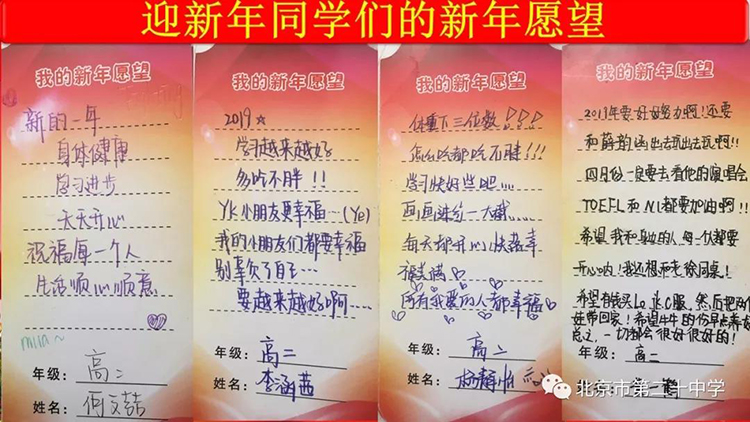 迎新年同学们的新年愿望
我的新年愿望
新的一年
身体健康
学习进步
天天开心
祝福每一个人
生活顺心顺意
mia~
年级：高二
姓名：何文喆
我的新年愿望
2019☆
学习越来越好
多吃不胖!!
YK小朋友更幸福…(Ye)
我的小朋友们都要幸福
别辜负了自己…
要越来越好啊……
年级：高二
姓名：李涵茜
我的新年愿望
体重下三位数!!!
怎么吃都吃不胖!!!
学习快好些吧……
画画进步一大截……
每天都开心快落幸
福美满
所有我爱的人都幸福
年级：高二
姓名：杨静怡
我的新年愿望
2019年要好好努力啊!还要
和薛韵涵出去玩出去玩啊!!
四月份一定要去看他的演唱会
TOEFL和N1都要加油啊!!
希望我和身边的人每一个都要
开心哟!我还想和老徐同桌!
希望有钱买Lo JK C服,然后把
娃带回家!希望牛牛的伤早点
总之,一切都会很好很好的!
年级：高二
姓名：
北京市第二十中学